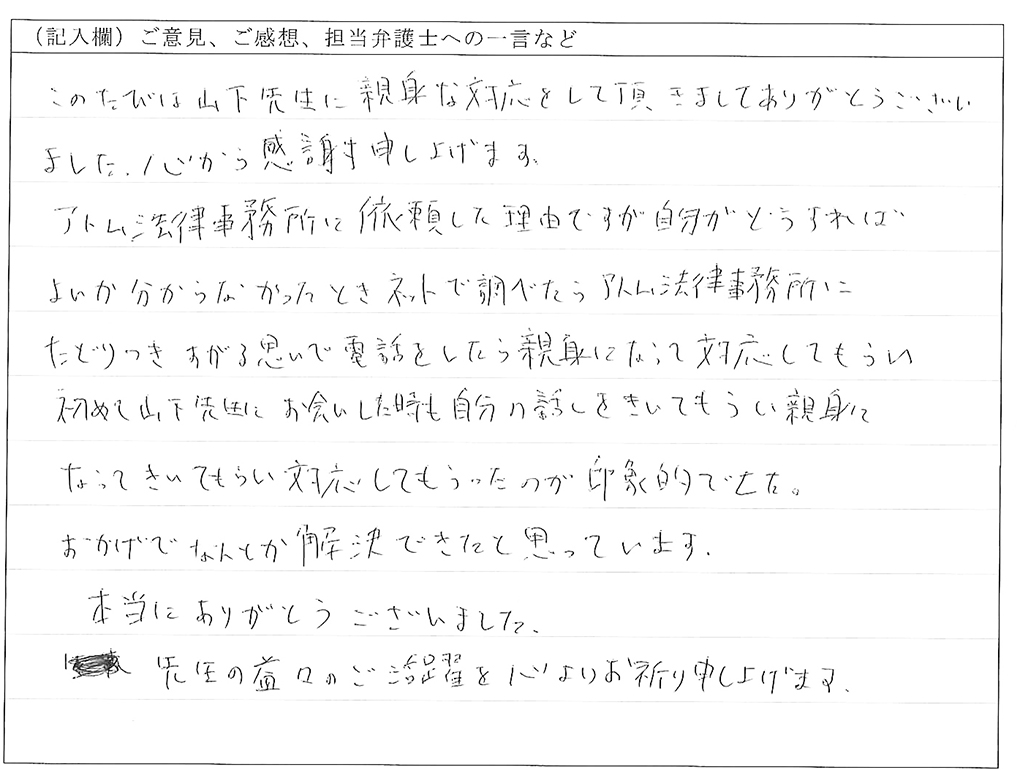 （記入欄）ご意見、ご感想、担当弁護士への一言など
このたびは山下先生に親身な対応をして頂きましてありがとうござい
ました。心から感謝申し上げます。
アトム法律事務所に依頼した理由ですが自分がどうすれば
よいか分からなかったときネットで調べたらアトム法律事務所に
たどりつきすがる思いで電話をしたら親身になって対応してもらい
初めて山下先生にお会いした時も自分の話しをきいてもらい親身に
なってきいてもらい対応してもらったのが印象的でした。
おかげでなんとか解決できたと思っています。
本当にありがとうございました。
先生の益々のご活躍を心よりお祈り申し上げます。